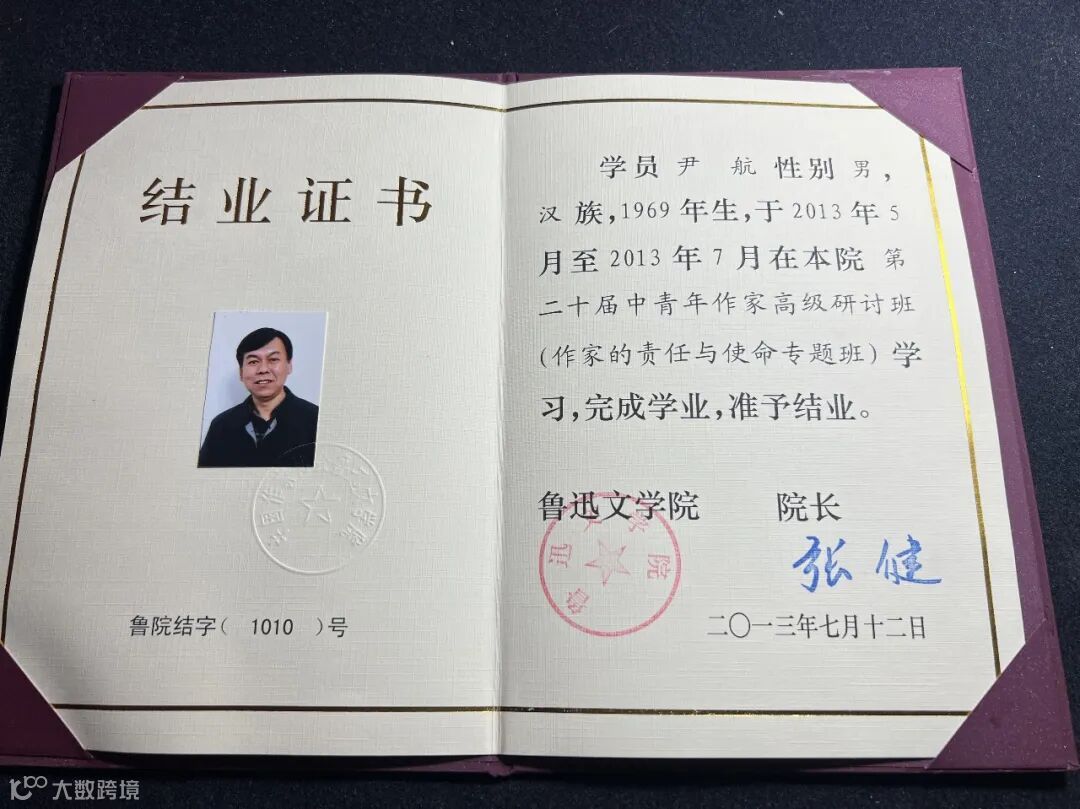 结业证书
鲁院结字( 1010 )号
学员 尹 航 性别 男,
汉 族,1969 年生,于 2013 年 5
月至 2013 年 7 月在本院 第
二十届中青年作家高级研讨班
(作家的责任与使命专题班) 学
习,完成学业,准予结业。
鲁迅文学院 院长
张健
鲁迅文学院
二〇一三年七月十二日
大数跨境